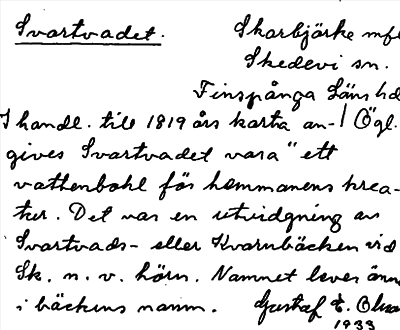 Svartvadet. Skarbjörke mfl
Skedevi sn.
Finspånga Läns hd
I handl. till 1819 års karta an-| Ögl.
gives Svartvadet vara "ett
vattenhohl för hemmanens krea-
tur. Det var en utvidgning av
Svartvads- eller Kvarnbäcken vid
Sk. n. v. hörn. Namnet lever änn
i bäckens namn. Gustaf E. Olss
1933